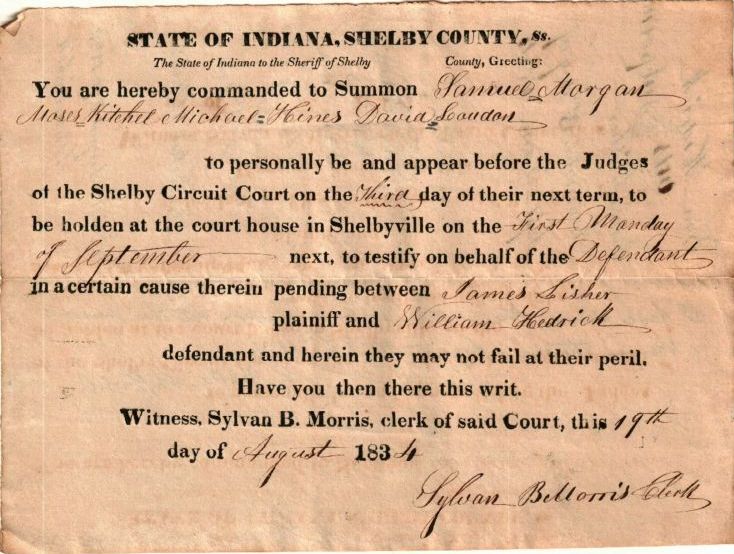 STATE OF INDIANA, SHELBY COUNTY, ss.
The State of Indiana to the Sheriff of Shelby County, Greeting:
You are hereby commanded to Summon Samuel Morgan
Moses Kitchel Michael Hines David Loudon
to personally be and appear before the Judges
of the Shelby Circuit Court on the Third day of their next term, to
be holden at the court house in Shelbyville on the First Monday
of September next, to testify on behalf of the Defendant
in a certain cause therein pending between James Lisher
plainiff and William Hedrick
defendant and herein they may not fail at their peril.
Have you then there this writ.
Witness, Sylvan B. Morris, clerk of said Court, this 19th
day of August 1834
Sylvan B Morris Clerk